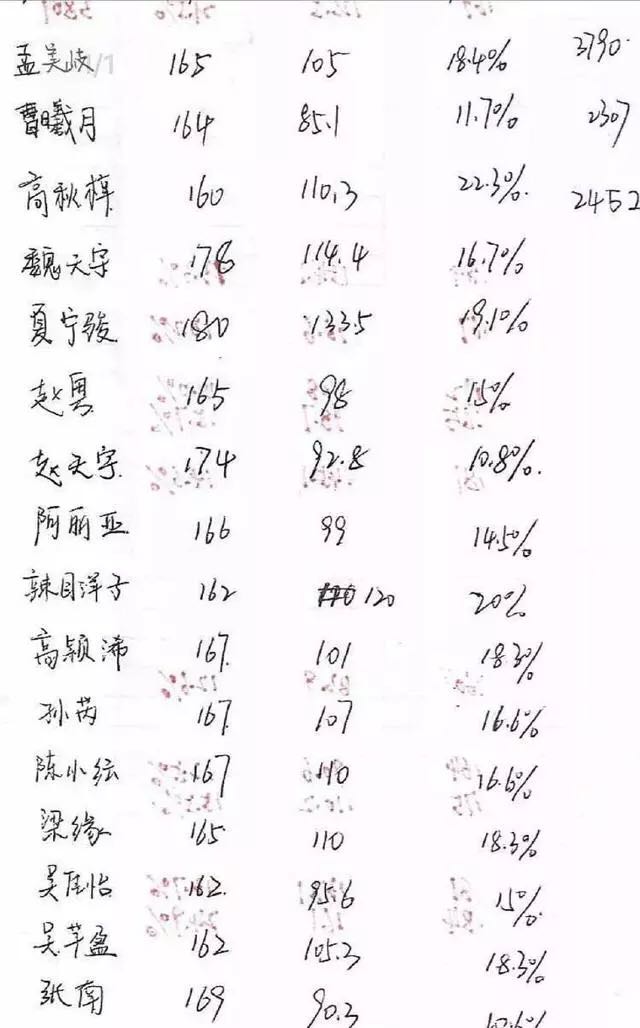 孟美岐 165 105 18.4% 3790
曹曦月 164 85.1 11.7% 2307
高秋梓 160 110.3 22.3% 2452
魏天宇 178 114.4 16.7%
夏宁骏 180 133.5 19.1%
赵粤 165 98 15%
赵天宇 174 92.8 10.8%
阿丽亚 166 99 14.5%
辣目洋子 162 120 20%
高颖浠 167 101 18.3%
孙芮 167 107 16.6%
陈小纭 167 110 16.6%
梁缘 165 110 18.3%
吴佳怡 162 95.6 15%
吴芊盈 162 105.3 18.3%
张南 169 90.3